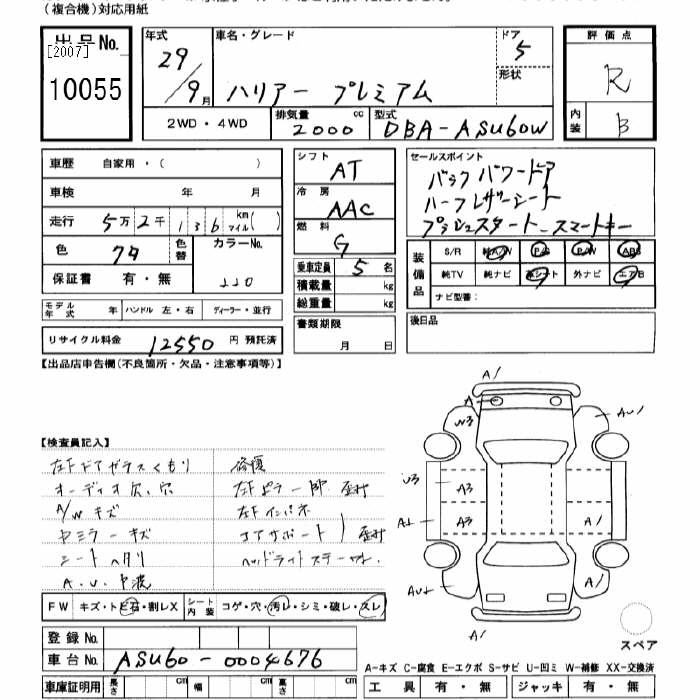 (複合機)対応用紙
出品No.
[2007]
10055
年式 29/9月
車名・グレード
ハリアー プレミアム
ドア 5
形状
評価点
R
内装 B
2WD・4WD
排気量 cc 2000
型式 DBA-ASU60W
車歴 自家用・( )
車検 年 月
走行 5万2千136 km マイル( )
色 クロ 色替 カラーNo. 220
保証書 有・無
モデル年式 年 ハンドル 左・右 ディーラー・並行
リサイクル料金 12550 円 預託済
シフト AT
冷房 AAC
燃料 G
乗車定員 5 名
積載量 kg
総重量 kg
書類期限
月 日
セールスポイント
バック パワードア
ハーフレザーシート
プッシュスタート スマートキー
装備品
S/R 純A/W P/S P/W ABS
純TV 純ナビ 革シート 外ナビ エアB
ナビ型番:
後日品
【出品店申告欄(不良箇所・欠品・注意事項等)】
【検査員記入】
左F ドアガラスくもり
オーディオ欠、穴
A/W キズ
ミラーキズ
シートヘタリ
A.U.
修復
左Fピラー
左Fインパネ
コアサポート
ヘッドライトステー
FW キズ・トビ石・割レX シート内装 コゲ・穴・汚レ・シミ・破レ・スレ
登録No.
車台No. ASU60-0004676
車庫証明用 長さ cm 幅 cm 高さ cm
A1
A
W3
AU1
U3
A3
A1
A3
A1
AU1
A1
A1
スペア
A-キズ C-腐食 E-エクボ S-サビ U-凹ミ W-補修 XX-交換済
工具 有・無 ジャッキ 有・無